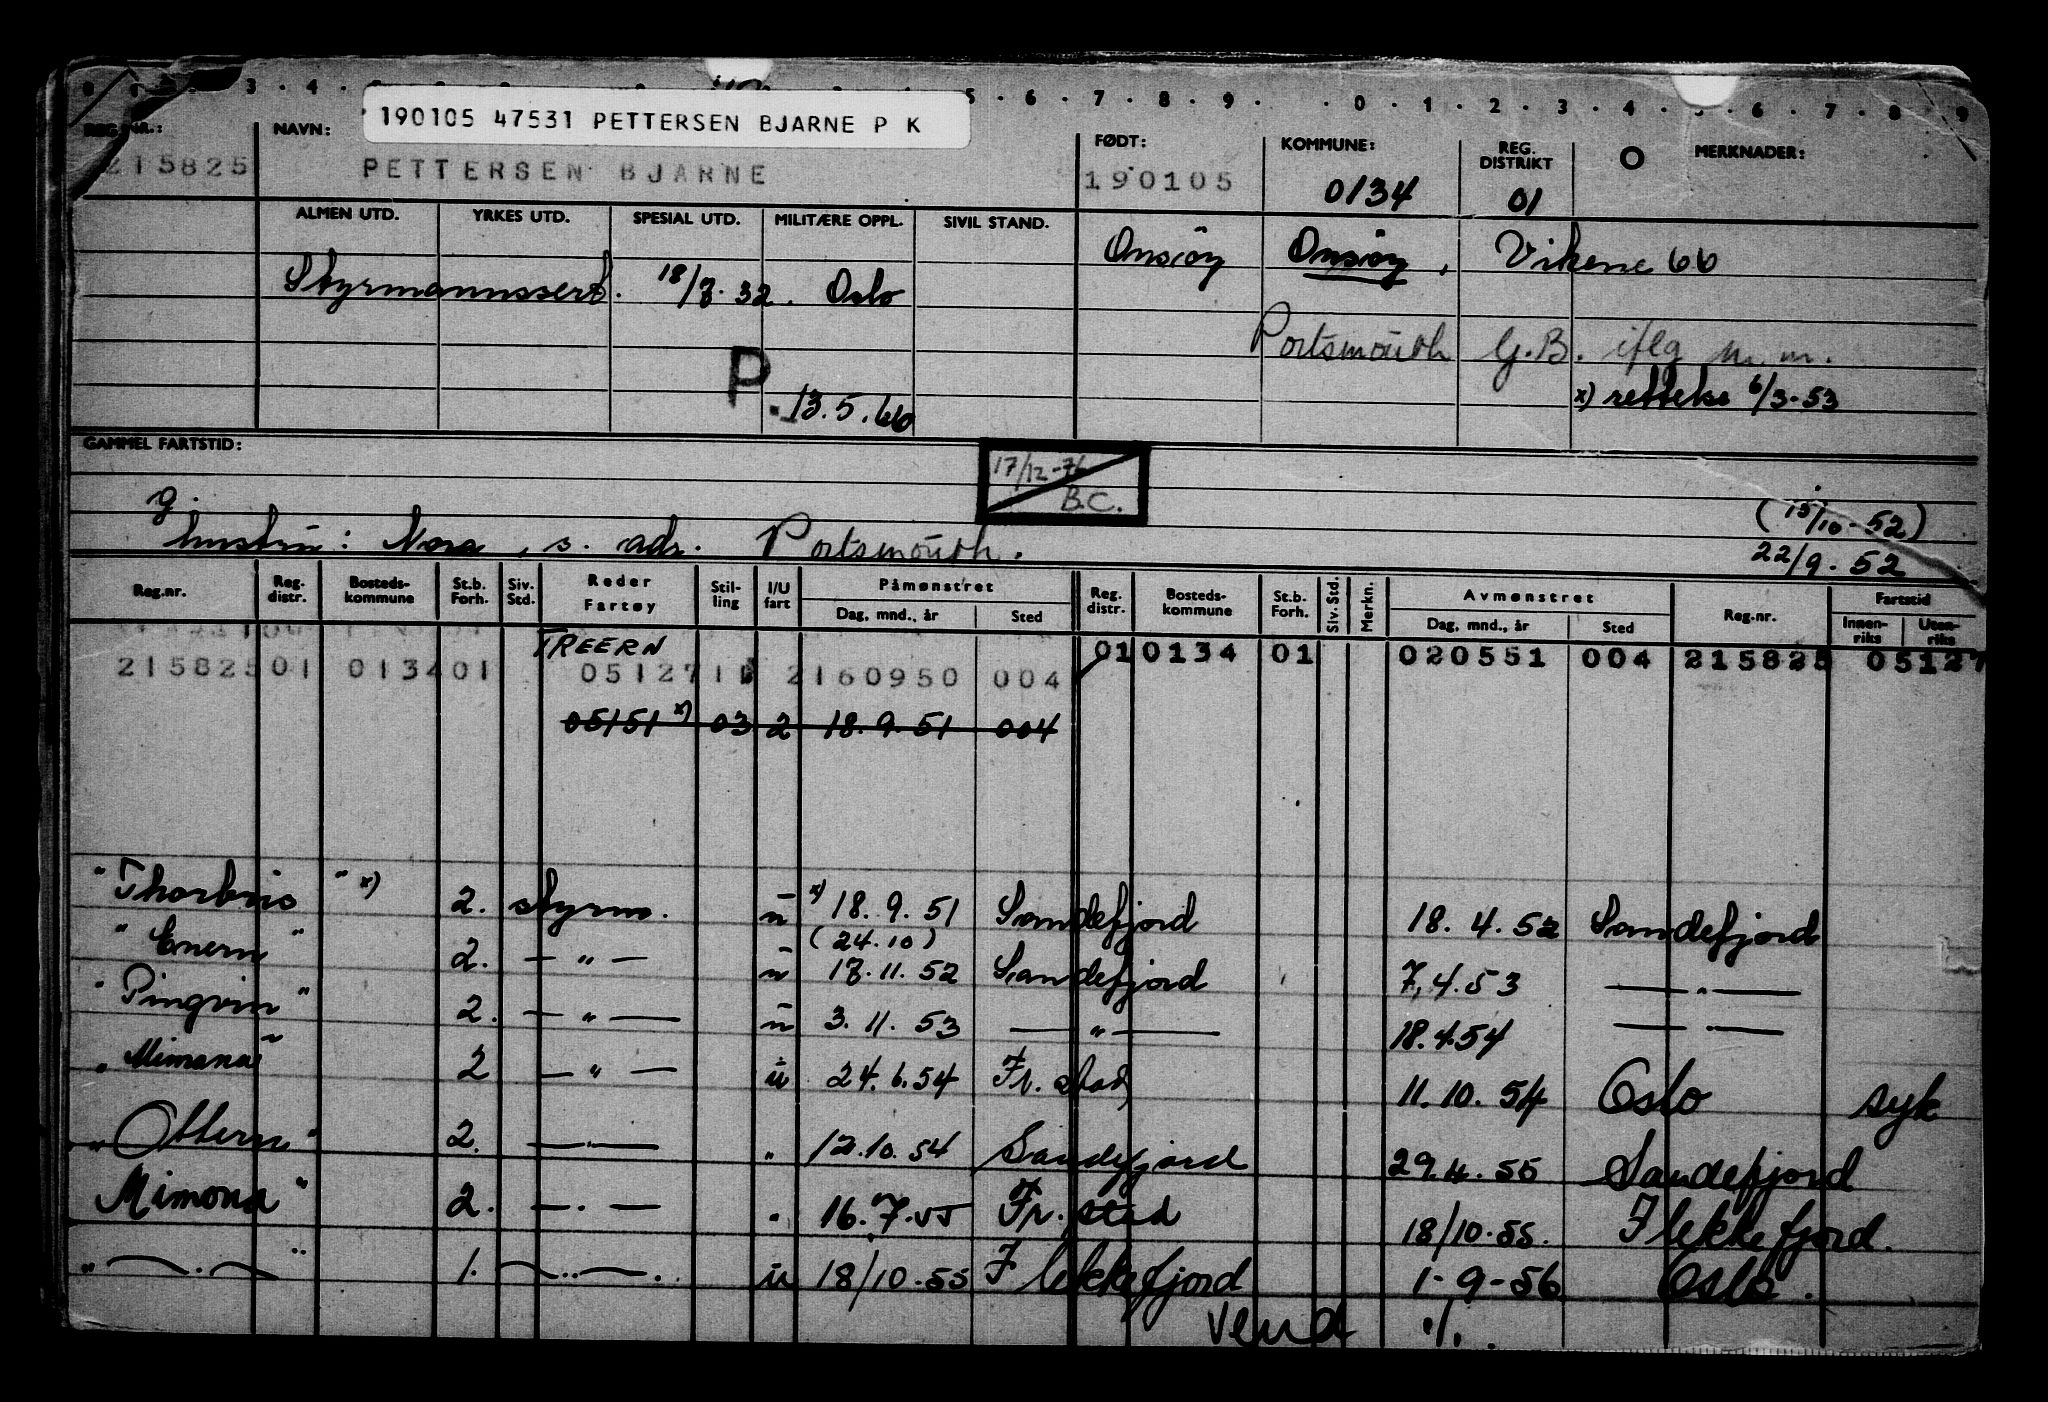 190105 47531 PETTERSEN BJARNE P K
REG. NR.: NAVN: FØDT: KOMMUNE: REG. DISTRIKT O MERKNADER:
215825 PETTERSEN BJARNE 190105 0134 01
ALMEN UTD. YRKES UTD. SPESIAL UTD. MILITÆRE OPPL. SIVIL STAND.
Onsøy Onsøy, Vikene 66
Styrmannssert. 18/7.32. Oslo
Portsmouth G.B. iflg m.m.
P
13.5.66
x) rettelse 6/3-53
GAMMEL FARTSTID:
17/12-76
B.C.
g.
(15/10-52)
hustru: Nora, s. adr. Portsmouth.
22/9.52
Reg.nr. Reg. distr. Bosteds-kommune St.b. Forh. Siv. Std. Reder Fartøy Stil-ling I/U fart Påmønstret Dag, mnd., år Sted Reg. distr. Bosteds-kommune St.b. Forh. Siv. Std. Merkn. Avmønstret Dag, mnd., år Sted Reg.nr. Fartstid Innen-riks Uten-riks
TREERN
21582501 013401 0512711 2160950 004 01 0134 01 020551 004 215825 05127
05151 x) 03 2 18.9.51 004
"Thorbris" x) 2. styrm. u x) 18.9.51 Sandefjord 18.4.52 Sandefjord
(24.10)
"Enern" 2. — " — u 17.11.52 Sandefjord 7.4.53 — " —
"Pingvin" 2. — " — u 3.11.53 — " — 18.4.54 — " —
"Mimona" 2 — " — u 24.6.54 Fr.stad 11.10.54 Oslo syk
"Ottern" 2. — " — " 12.10.54 Sandefjord 29.4.55 Sandefjord
Mimona" 2. — . — " 16.7.55 Fr.stad 18/10.55. Flekkefjord.
" — . — " 1. — " — . u 18/10.55 Flekkefjord 1-9-56 Oslo.
Vend ./.